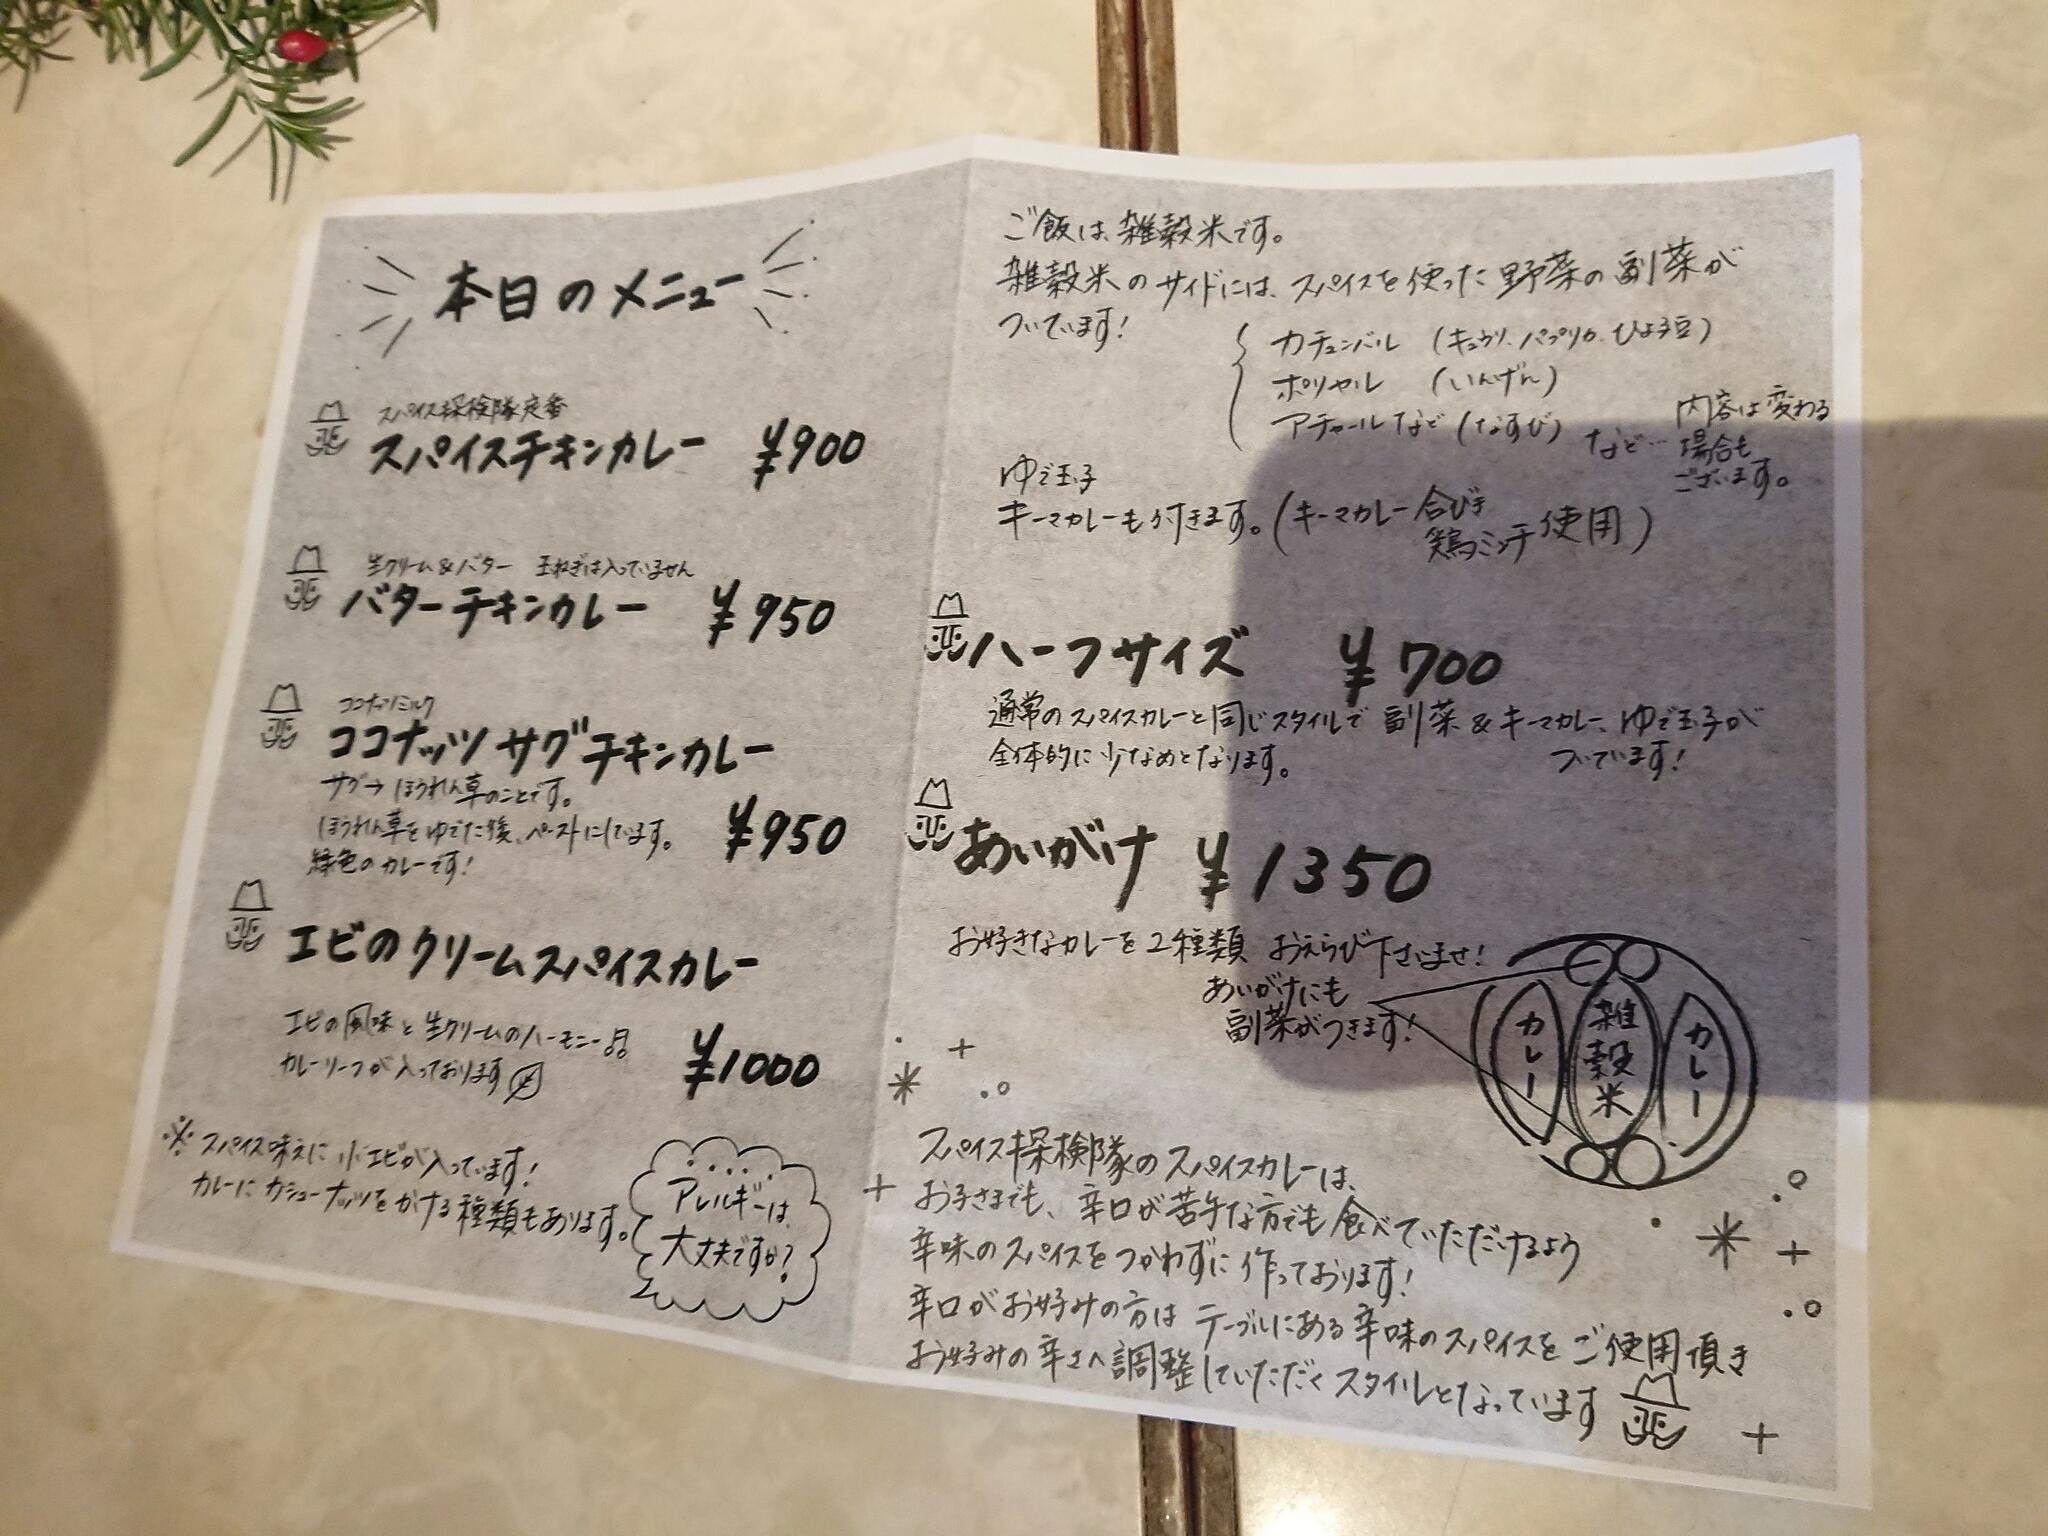 本日のメニュー
スパイス探検隊定番
スパイスチキンカレー ¥900
生クリーム&バター 玉ねぎは入っていません
バターチキンカレー ¥950
ココナッツミルク
ココナッツサグチキンカレー
サグ→ほうれん草のことです。
ほうれん草をゆでた後、ペーストにしています。
緑色のカレーです!
¥950
エビのクリームスパイスカレー
エビの風味と生クリームのハーモニー
カレーリーフが入っております
¥1000
※スパイス味えに小エビが入っています!
カレーにカシューナッツをかける種類もあります。
アレルギーは
大丈夫ですか?
ご飯は、雑穀米です。
雑穀米のサイドには、スパイスを使った野菜の副菜が
ついています!
カチュンバル (キュウリ、パプリカ、ひよこ豆)
ポリヤル (いんげん)
アチャールなど (なすび) など…
内容は変わる
場合も
ございます。
ゆで玉子
キーマカレーも付きます。(キーマカレー合びき
鶏ミンチ使用)
ハーフサイズ ¥700
通常のスパイスカレーと同じスタイルで副菜&キーマカレー、ゆで玉子が
全体的に少なめとなります。 ついています!
あいがけ ¥1350
お好きなカレーを2種類 おえらび下さいませ!
あいがけにも
副菜がつきます!
カレー
雑穀米
カレー
スパイス探検隊のスパイスカレーは、
お子さまでも、辛口が苦手な方でも食べていただけるよう
辛味のスパイスをつかわずに作っております!
辛口がお好みの方はテーブルにある辛味のスパイスをご使用頂き
お好みの辛さへ調整していただくスタイルとなっています